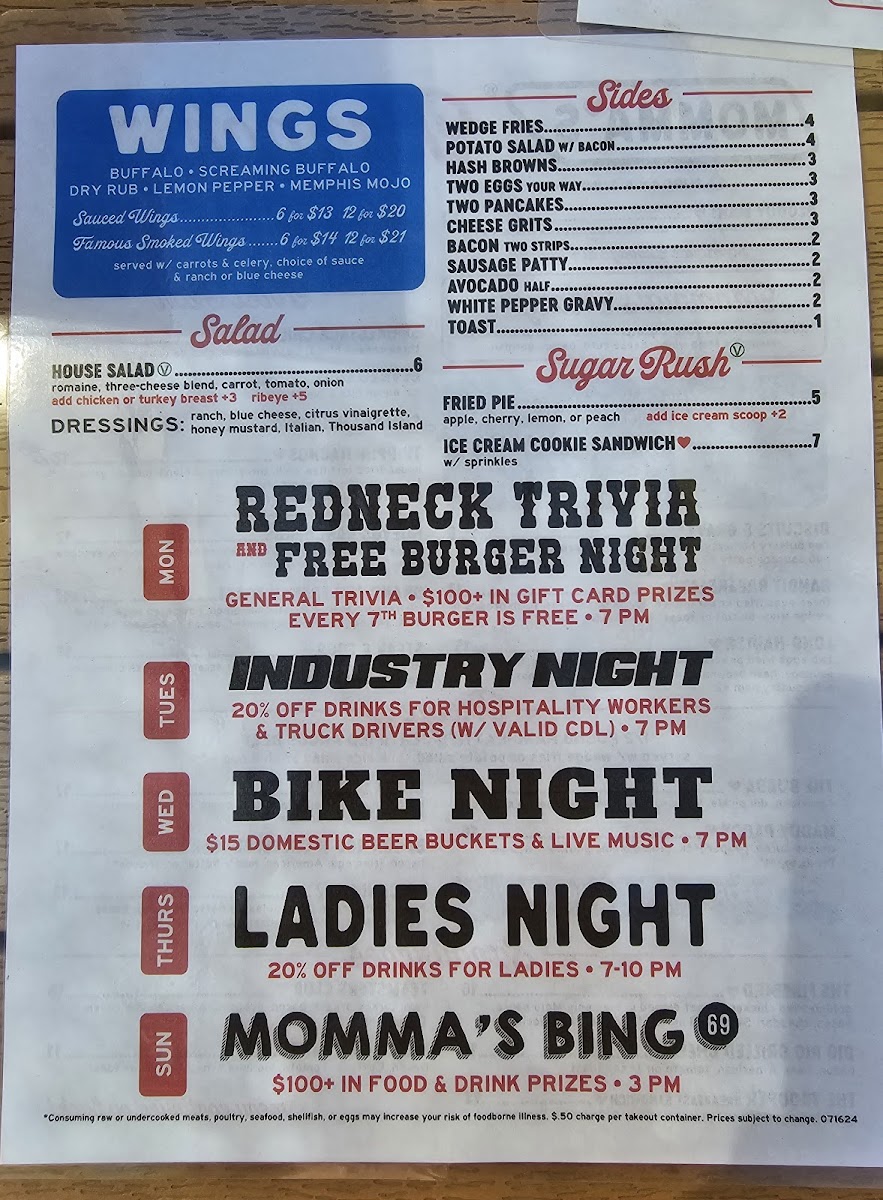 WINGS
BUFFALO • SCREAMING BUFFALO
DRY RUB • LEMON PEPPER • MEMPHIS MOJO
Sauced Wings......................6 for $13 12 for $20
Famous Smoked Wings.......6 for $14 12 for $21
served w/ carrots & celery, choice of sauce
& ranch or blue cheese
Salad
HOUSE SALAD Ⓥ..........6
romaine, three-cheese blend, carrot, tomato, onion
add chicken or turkey breast +3 ribeye +5
DRESSINGS: ranch, blue cheese, citrus vinaigrette,
honey mustard, Italian, Thousand Island
Sides
WEDGE FRIES..........4
POTATO SALAD W/ BACON..........4
HASH BROWNS..........3
TWO EGGS YOUR WAY..........3
TWO PANCAKES..........3
CHEESE GRITS..........3
BACON TWO STRIPS..........2
SAUSAGE PATTY..........2
AVOCADO HALF..........2
WHITE PEPPER GRAVY..........2
TOAST..........1
Sugar Rush Ⓥ
FRIED PIE..........5
apple, cherry, lemon, or peach add ice cream scoop +2
ICE CREAM COOKIE SANDWICH♥..........7
w/ sprinkles
MON
REDNECK TRIVIA
AND FREE BURGER NIGHT
GENERAL TRIVIA • $100+ IN GIFT CARD PRIZES
EVERY 7TH BURGER IS FREE • 7 PM
TUES
INDUSTRY NIGHT
20% OFF DRINKS FOR HOSPITALITY WORKERS
& TRUCK DRIVERS (W/ VALID CDL) • 7 PM
WED
BIKE NIGHT
$15 DOMESTIC BEER BUCKETS & LIVE MUSIC • 7 PM
THURS
LADIES NIGHT
20% OFF DRINKS FOR LADIES • 7-10 PM
SUN
MOMMA'S BING 69
$100+ IN FOOD & DRINK PRIZES • 3 PM
*Consuming raw or undercooked meats, poultry, seafood, shellfish, or eggs may increase your risk of foodborne illness. $.50 charge per takeout container. Prices subject to change. 071624